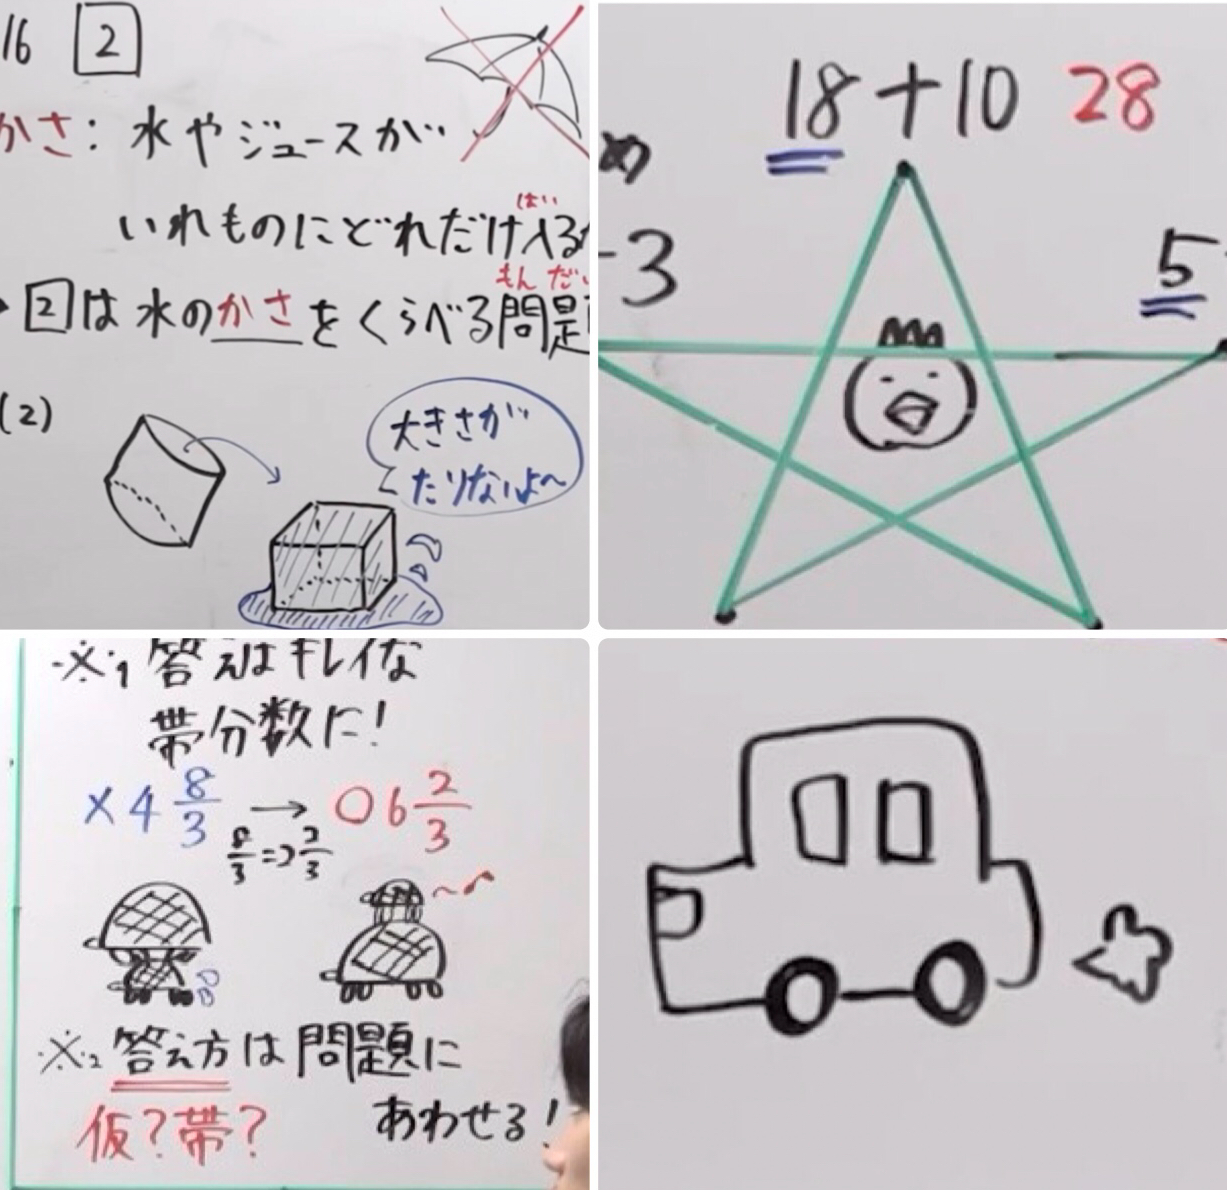 16 2
かさ: 水やジュースが
いれものにどれだけ入る
はい
→ 2は水のかさをくらべる問題
もんだい
(2)
大きさが
たりないよ〜
18+10 28
め
-3
5
※1 答えはキレイな
帯分数に!
×4 8/3 → ○6 2/3
8/3=2 2/3
※2 答え方は問題に
あわせる!
仮?帯?